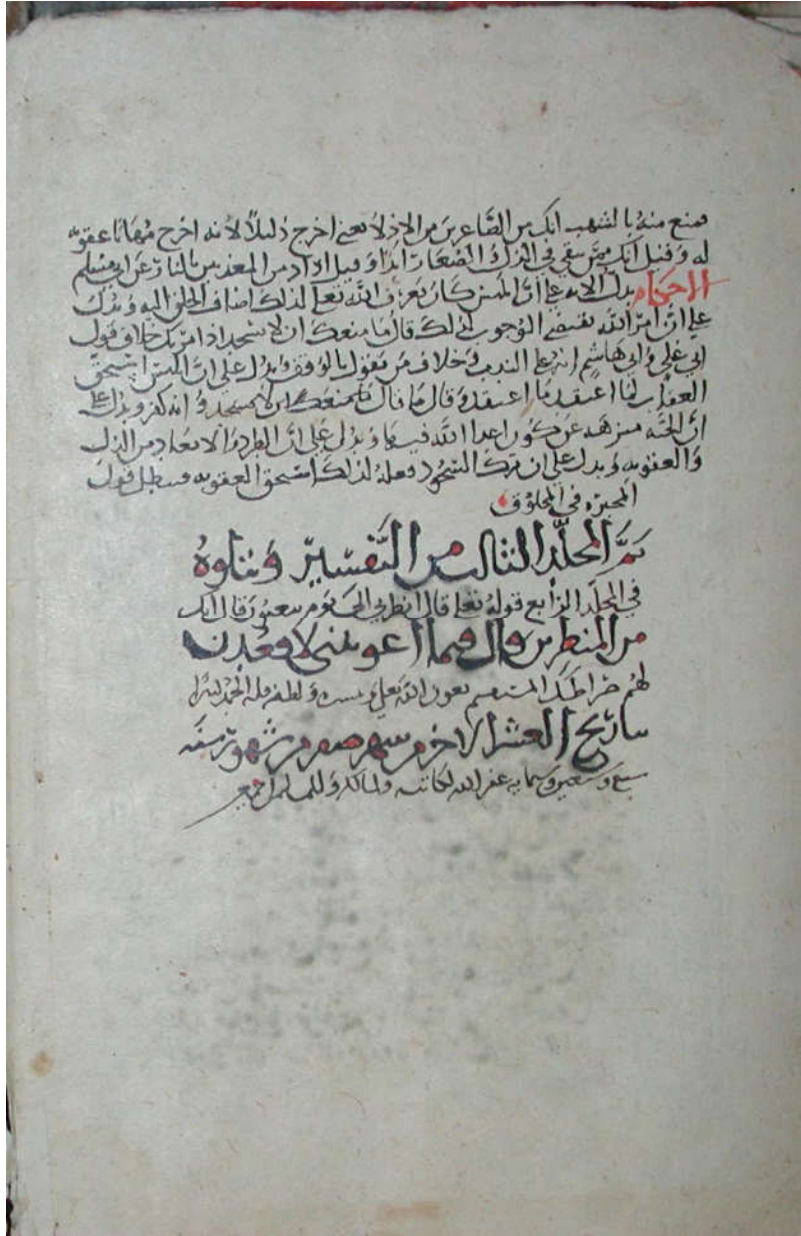 فمنع منه بالشهب انك من الصاغرين من الاذلا يعني اخرج ذليلاً لأنه اخرج مهانا عقوبة
له وقيل انك ممن بقي في الذل والصغار ابدا وقيل اراد من المعذبين بالنار عن ابي مسلم
الاحكام يدل الايه على ان ابليس كان يعرف الله تعلى لذلك اضاف الخلق اليه ويدل
على ان امر الله يقتضي الوجوب لذلك قال ما منعك ان لا تسجد اذ امرتك خلاف قول
ابي علي وابي هاشم انه على الندب وخلاف من يقول بالوقف ويدل على ان ابليس استحق
العقاب لما اعتقد ما اعتقده وقال ما قال ما منعك ان لا تسجد وانه كفر ويدل على
ان الجنه منزهه عن كون اعدا الله فيها ويدل على ان الطرد والابعاد من الذل
والعقوبه ويدل على ان ترك السجود فعله لذلك استحق العقوبه فيبطل قول
المجبره في المخلوق
تم المجلد الثالث من التفسير ويتلوه
في المجلد الرابع قوله تعلى قال انظرني الى يوم يبعثون قال انك
من المنظرين قال فبما اغويتني لاقعدن
لهم صراطك المستقيم بعون الله تعلى ومنه ولطفه فله الحمد كثيرا
بتاريخ العشر الاخر من شهر صفر من شهور سنة
سبع وستمايه غفر الله لكاتبه ولمالكه وللمسلمين اجمعين